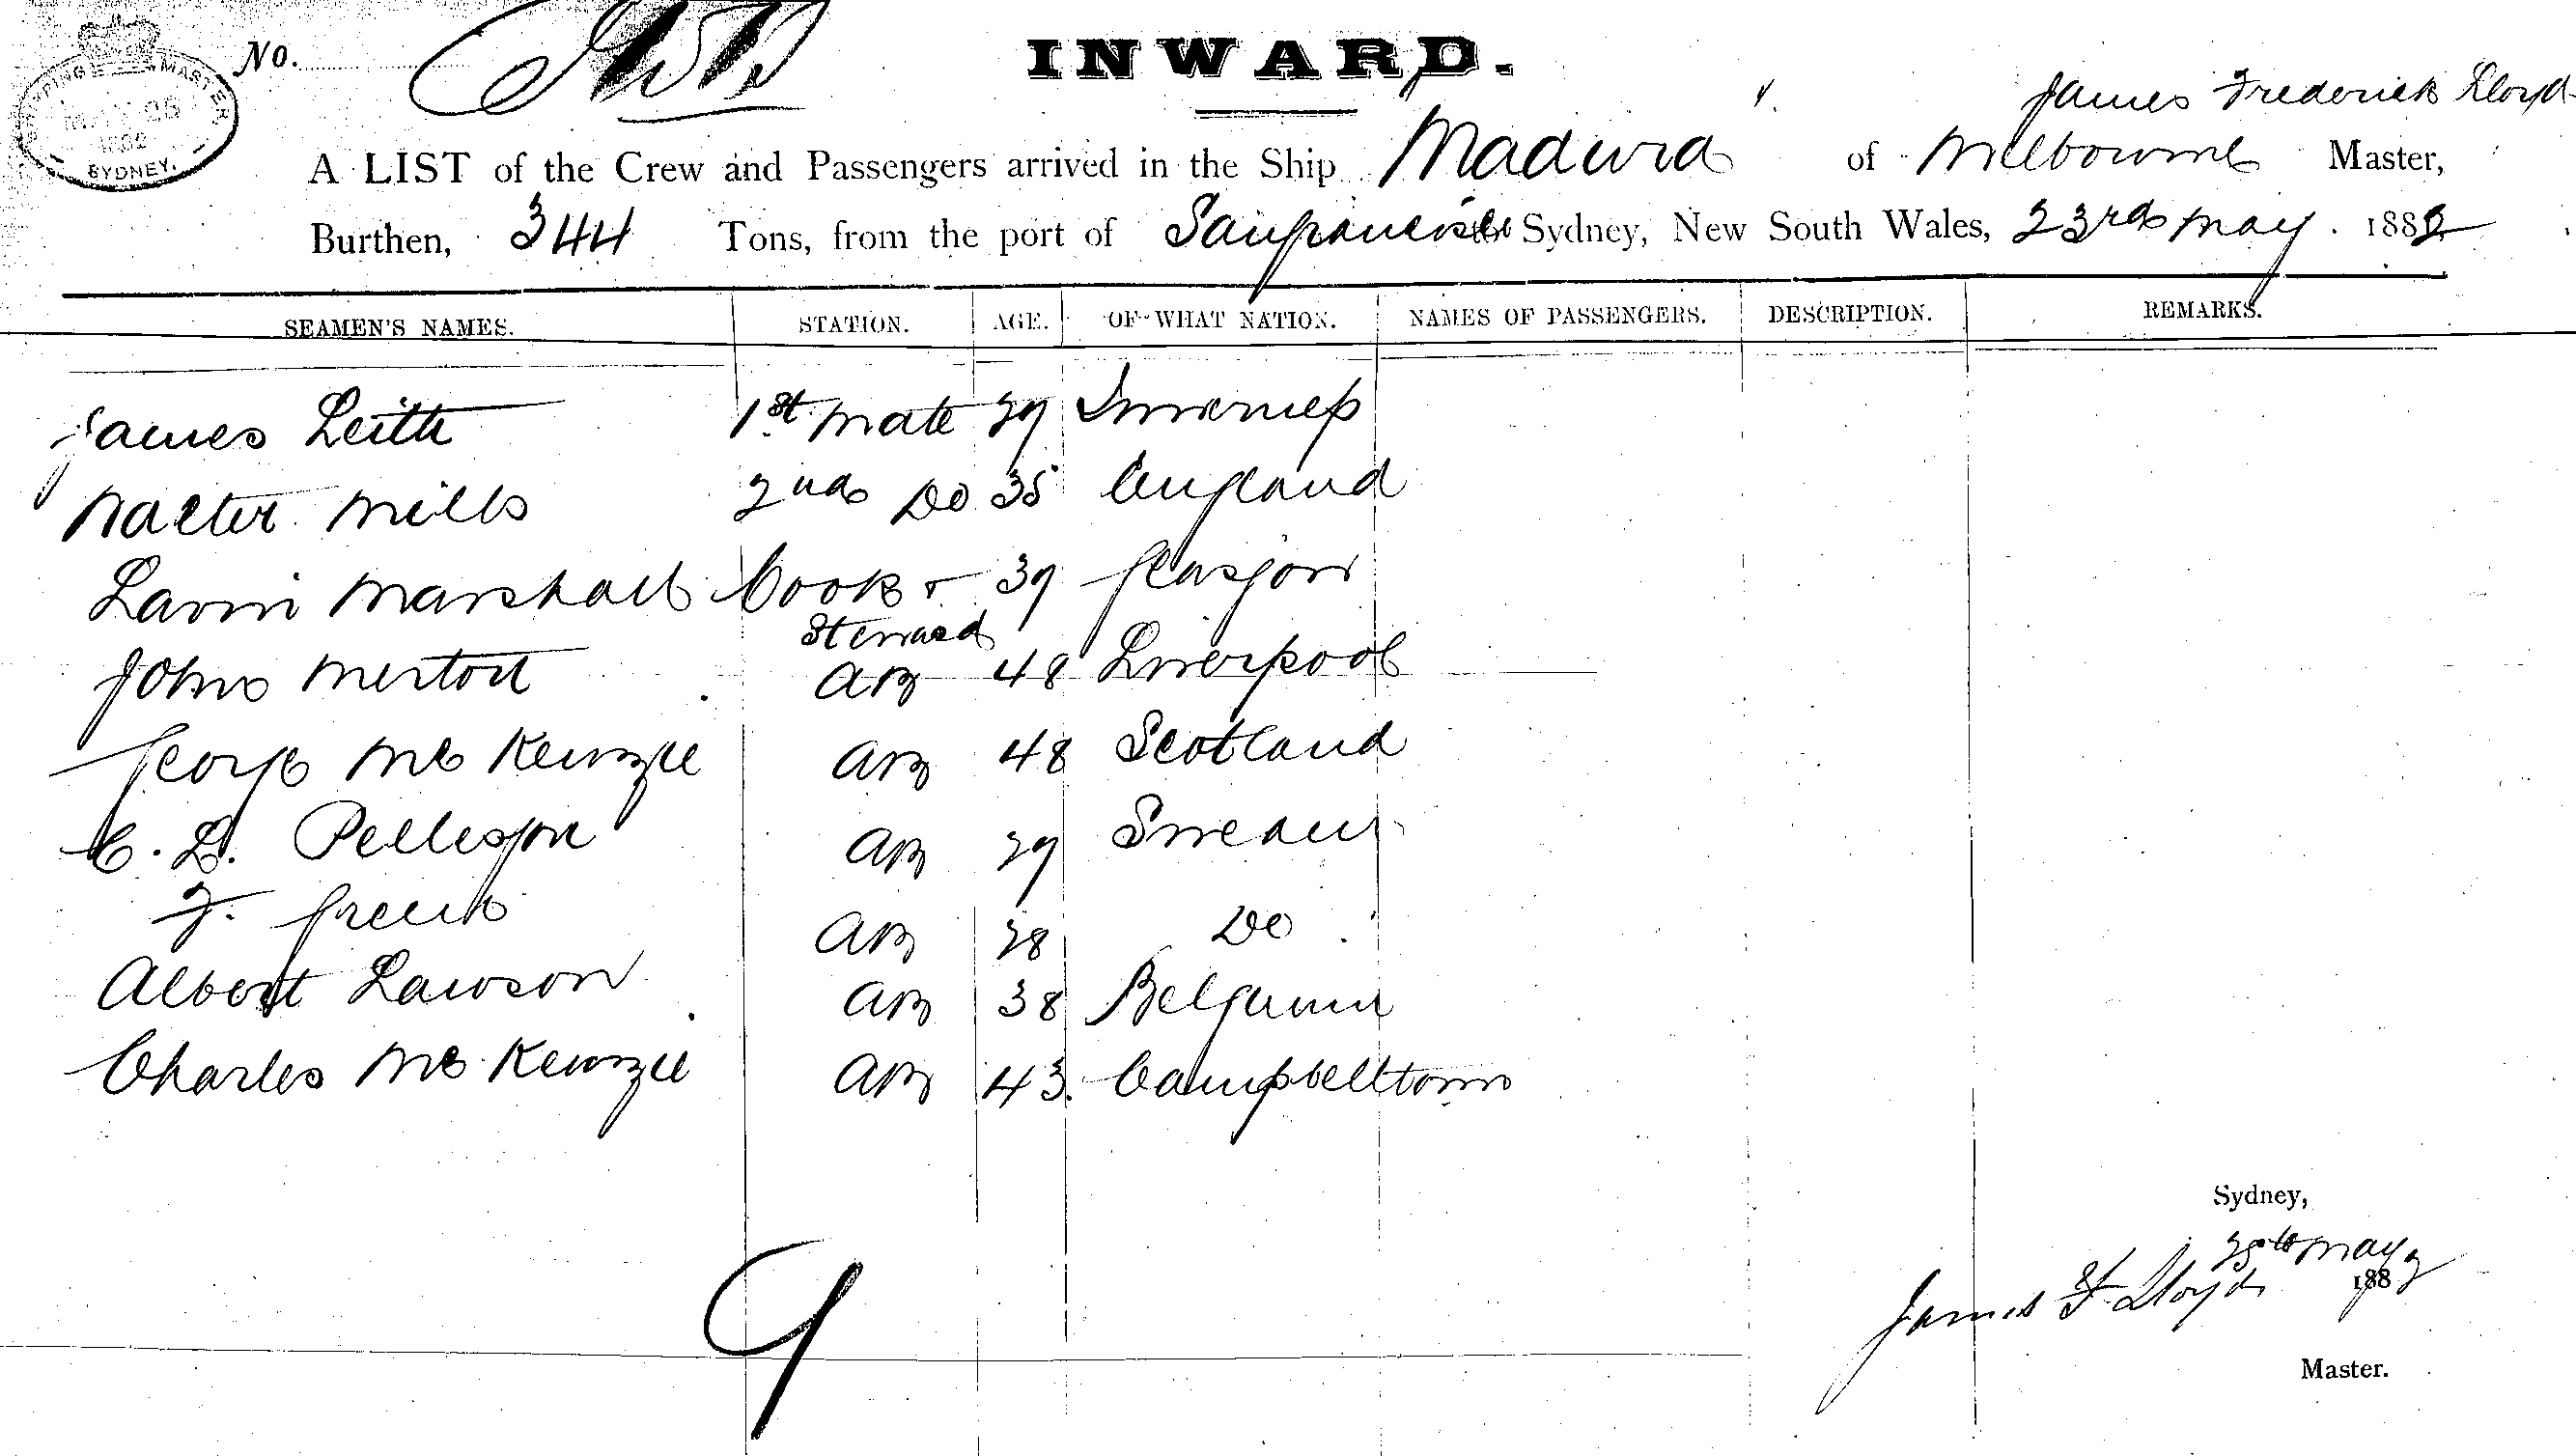 No.
INWARD.
SHIPPING MASTER
MAY 25
1882
SYDNEY.
James Frederick Lloyd
A LIST of the Crew and Passengers arrived in the Ship Madura of Melbourne Master,
Burthen, 344 Tons, from the port of Sanfrancisco to Sydney, New South Wales, 23rd May. 1882
SEAMEN'S NAMES. STATION. AGE. OF WHAT NATION. NAMES OF PASSENGERS. DESCRIPTION. REMARKS.
James Leith 1st Mate 29 Inverness
Walter Mills 2nd Do 35 England
Marshall Cook & 39 Glasgow
Steward
John Merton AB 48 Liverpool
George McKenzie AB 48 Scotland
C. L. AB 29 Sweden
F. AB 28 Do
Albert Lawson AB 38 Belgium
Charles McKenzie AB 43. Campbelltown
9
Sydney,
25th May
1882
James F. Lloyd
Master.